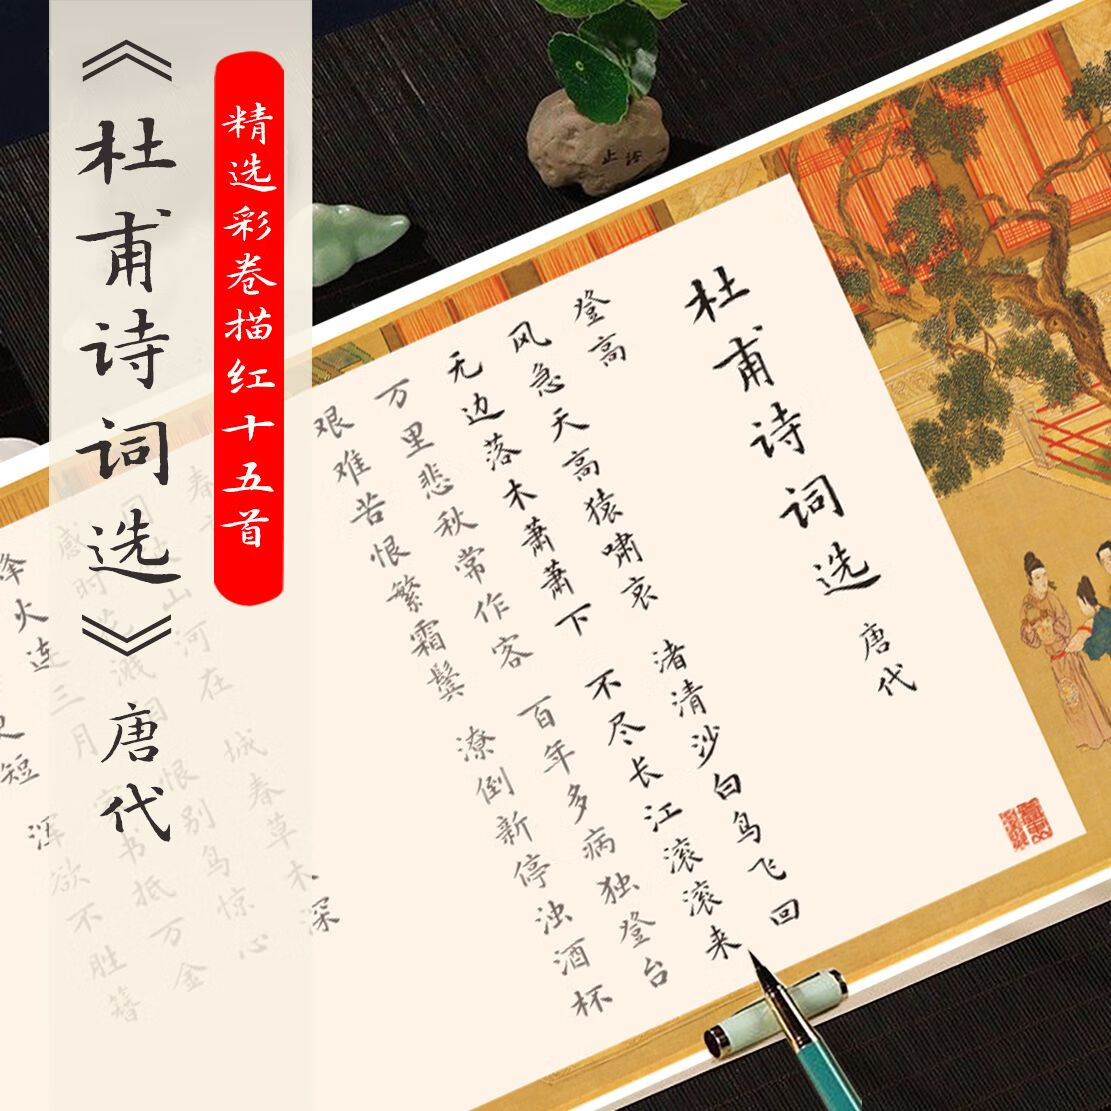 《杜甫诗词选》唐代
精选彩卷描红十五首
杜甫诗词选 唐代
登高
风急天高猿啸哀 渚清沙白鸟飞回
无边落木萧萧下 不尽长江滚滚来
万里悲秋常作客 百年多病独登台
艰难苦恨繁霜鬓 潦倒新停浊酒杯
春
国 山河在 城春草木深
感时花溅 恨别鸟惊心
烽火连三月 书抵万金
短 浑欲不胜簪